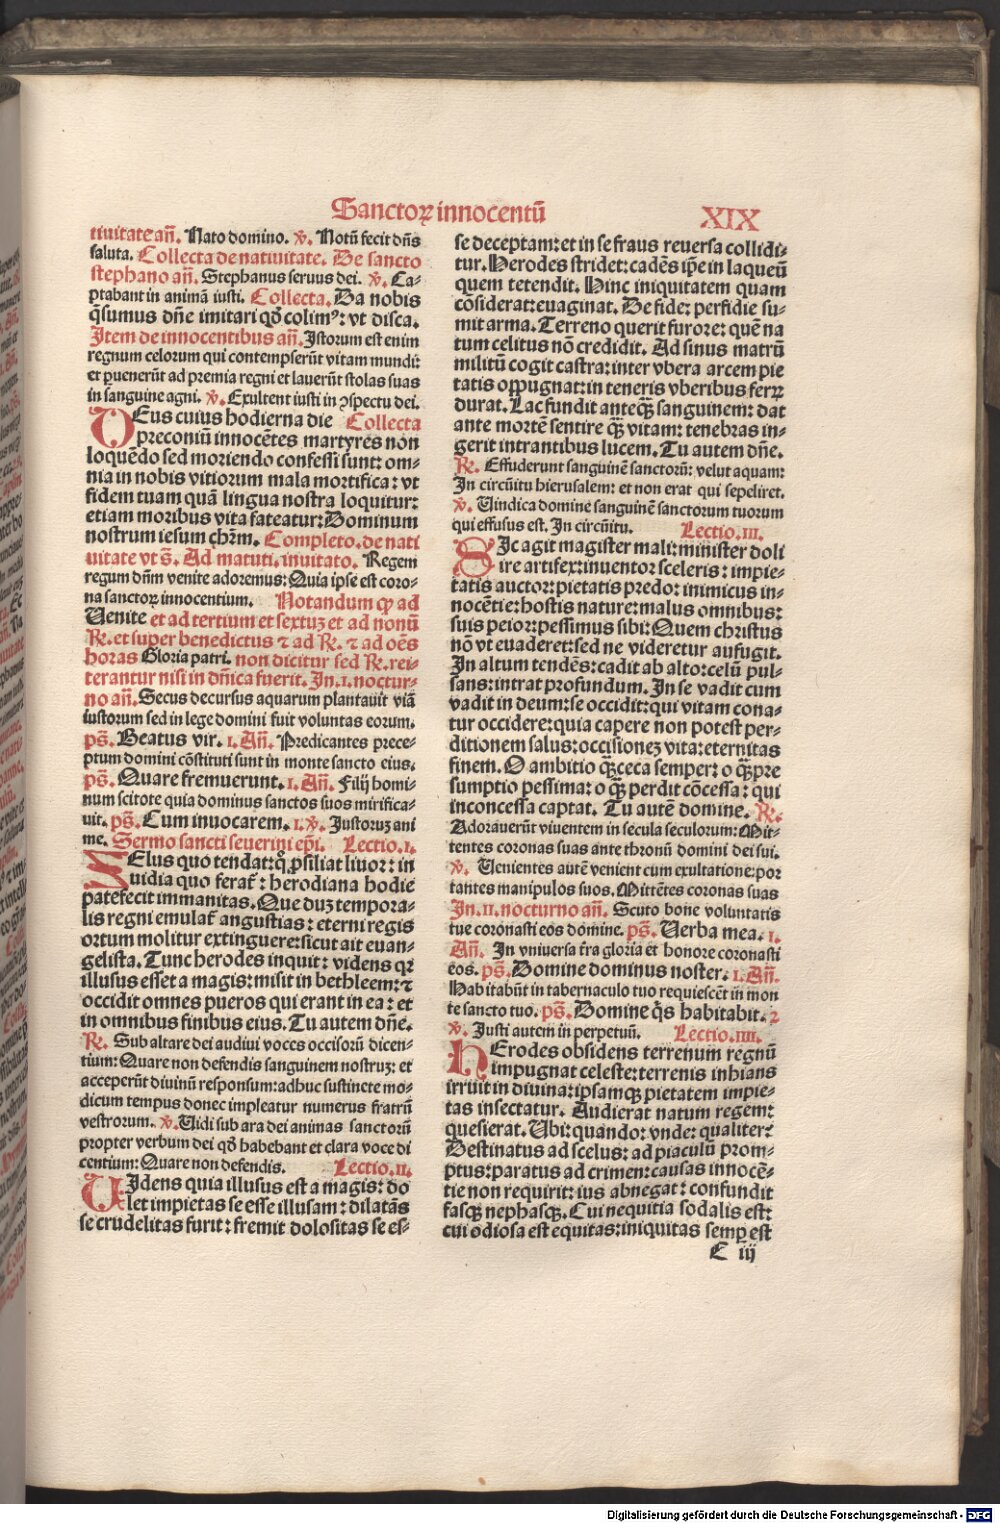 Sanctoꝝ innocentū
XIX
tiuitate an̄. Nato domino. ℣. Notū fecit dn̄s
saluta. Collecta de natiuitate. De sancto
stephano an̄. Stephanus seruus dei. ℣. Ca-
ptabant in animā iusti. Collecta. Da nobis
q̄sumus dn̄e imitari qd̄ colimꝰ: vt disca.
Item de innocentibus an̄. Istorum est enim
regnum celorum qui contempserūt vitam mundi:
et ꝑuenerūt ad premia regni et lauerūt stolas suas
in sanguine agni. ℣. Exultent iusti in ꝯspectu dei.
DEus cuius hodierna die Collecta
preconiū innocētes martyres non
loquēdo sed moriendo confessi sunt: om-
nia in nobis vitiorum mala mortifica: vt
fidem tuam quā lingua nostra loquitur:
etiam moribus vita fateatur: Dominum
nostrum iesum chr̄m. Completo. de nati
uitate vt s̄. Ad matuti. inuitato. Regem
regum dn̄m venite adoremus: Quia ipse est coro-
na sanctoꝝ innocentium. Notandum ꝙ ad
Venite et ad tertium et sextuꝫ et ad nonū
℟. et super benedictus ⁊ ad ℟. ⁊ ad oēs
horas Gloria patri. non dicitur sed ℟. rei-
terantur nisi in dn̄ica fuerit. In .i. noctur-
no an̄. Secus decursus aquarum plantauit viā
iustorum sed in lege domini fuit voluntas eorum.
ps̄. Beatus vir. i. An̄. Predicantes prece-
ptum domini cōstituti sunt in monte sancto eius.
ps̄. Quare fremuerunt. i. An̄. Filij homi-
num scitote quia dominus sanctos suos mirifica-
uit. ps̄. Cum inuocarem. i. ℣. Iustoruꝫ ani
me. Sermo sancti seuerini ep̄i. Lectio .i.
ZElus quo tendat: q̊ ꝓsiliat liuor: in
uidia quo ferat᷑: herodiana hodie
patefecit immanitas. Que duꝫ tempora-
lis regni emulat᷑ angustias: eterni regis
ortum molitur extinguere: sicut ait euan-
gelista. Tunc herodes inquit: videns qꝛ
illusus esset a magis: misit in bethleem: ⁊
occidit omnes pueros qui erant in ea: et
in omnibus finibus eius. Tu autem dn̄e.
℟. Sub altare dei audiui voces occisorū dicen-
tium: Quare non defendis sanguinem nostruꝫ: et
acceperūt diuinū responsum: adhuc sustinete mo-
dicum tempus donec impleatur numerus fratrū
vestrorum. ℣. Vidi sub ara dei animas sanctorū
propter verbum dei qd̄ habebant et clara voce di
centium: Quare non defendis. Lectio .ii.
VIdens quia illusus est a magis: do
let impietas se esse illusam: dilatās
se crudelitas furit: fremit dolositas se es-
se deceptam: et in se fraus reuersa collidi-
tur. Herodes stridet: cadēs ip̄e in laqueū
quem tetendit. Hinc iniquitatem quam
cōsiderat: euaginat. De fide: perfidie su-
mit arma. Terreno querit furore: quē na
tum celitus nō credidit. Ad sinus matrū
militū cogit castra: inter vbera arcem pie
tatis oppugnat: in teneris vberibus ferꝝ
durat. Lac fundit anteq̄ꝫ sanguinem: dat
ante mortē sentire q̄ꝫ vitam: tenebras in-
gerit intrantibus lucem. Tu autem dn̄e.
℟. Effuderunt sanguinē sanctorū: velut aquam:
In circūitu hierusalem: et non erat qui sepeliret.
℣. Vindica domine sanguinē sanctorum tuorum
qui effusus est. In circūitu. Lectio .iii.
SIc agit magister mali: minister doli
ire artifex: inuentor sceleris: impie-
tatis auctor: pietatis predo: inimicus in-
nocētie: hostis nature: malus omnibus:
suis peior: pessimus sibi: Quem christus
nō vt euaderet: sed ne videretur aufugit.
In altum tendēs: cadit ab alto: celū pul-
sans: intrat profundum. In se vadit cum
vadit in deum: se occidit: qui vitam cona-
tur occidere: quia capere non potest per-
ditionem salus: occisioneꝫ vita: eternitas
finem. O ambitio q̄ꝫ ceca semper: o q̄ꝫ pre
sumptio pessima: o q̄ꝫ perdit cōcessa: qui
inconcessa captat. Tu autē domine. ℟.
Adorauerūt viuentem in secula seculorum: Mit-
tentes coronas suas ante thronū domini dei sui.
℣. Uenientes autē venient cum exultatione: por
tantes manipulos suos. Mittētes coronas suas
In .ii. nocturno an̄. Scuto bone voluntatis
tue coronasti eos domine. ps̄. Verba mea. i.
An̄. In vniuersa t̄ra gloria et honore coronasti
eos. ps̄. Domine dominus noster. i. An̄.
Habitabūt in tabernaculo tuo requiescēt in mon
te sancto tuo. ps̄. Domine q̄s habitabit. 2
℣. Iusti autem in perpetuū. Lectio .iiii.
HErodes obsidens terrenum regnū
impugnat celeste: terrenis inhians
irruit in diuina: ipsamqꝫ pietatem impie-
tas insectatur. Audierat natum regem:
quesierat. Vbi: quando: vnde: qualiter:
Destinatus ad scelus: ad piaculū prom-
ptus: paratus ad crimen: causas innocē-
tie non requirit: ius abnegat: confundit
fasqꝫ nephasqꝫ. Cui nequitia sodalis est:
cui odiosa est equitas: iniquitas semꝑ est
C iij
Digitalisierung gefördert durch die Deutsche Forschungsgemeinschaft - DFG